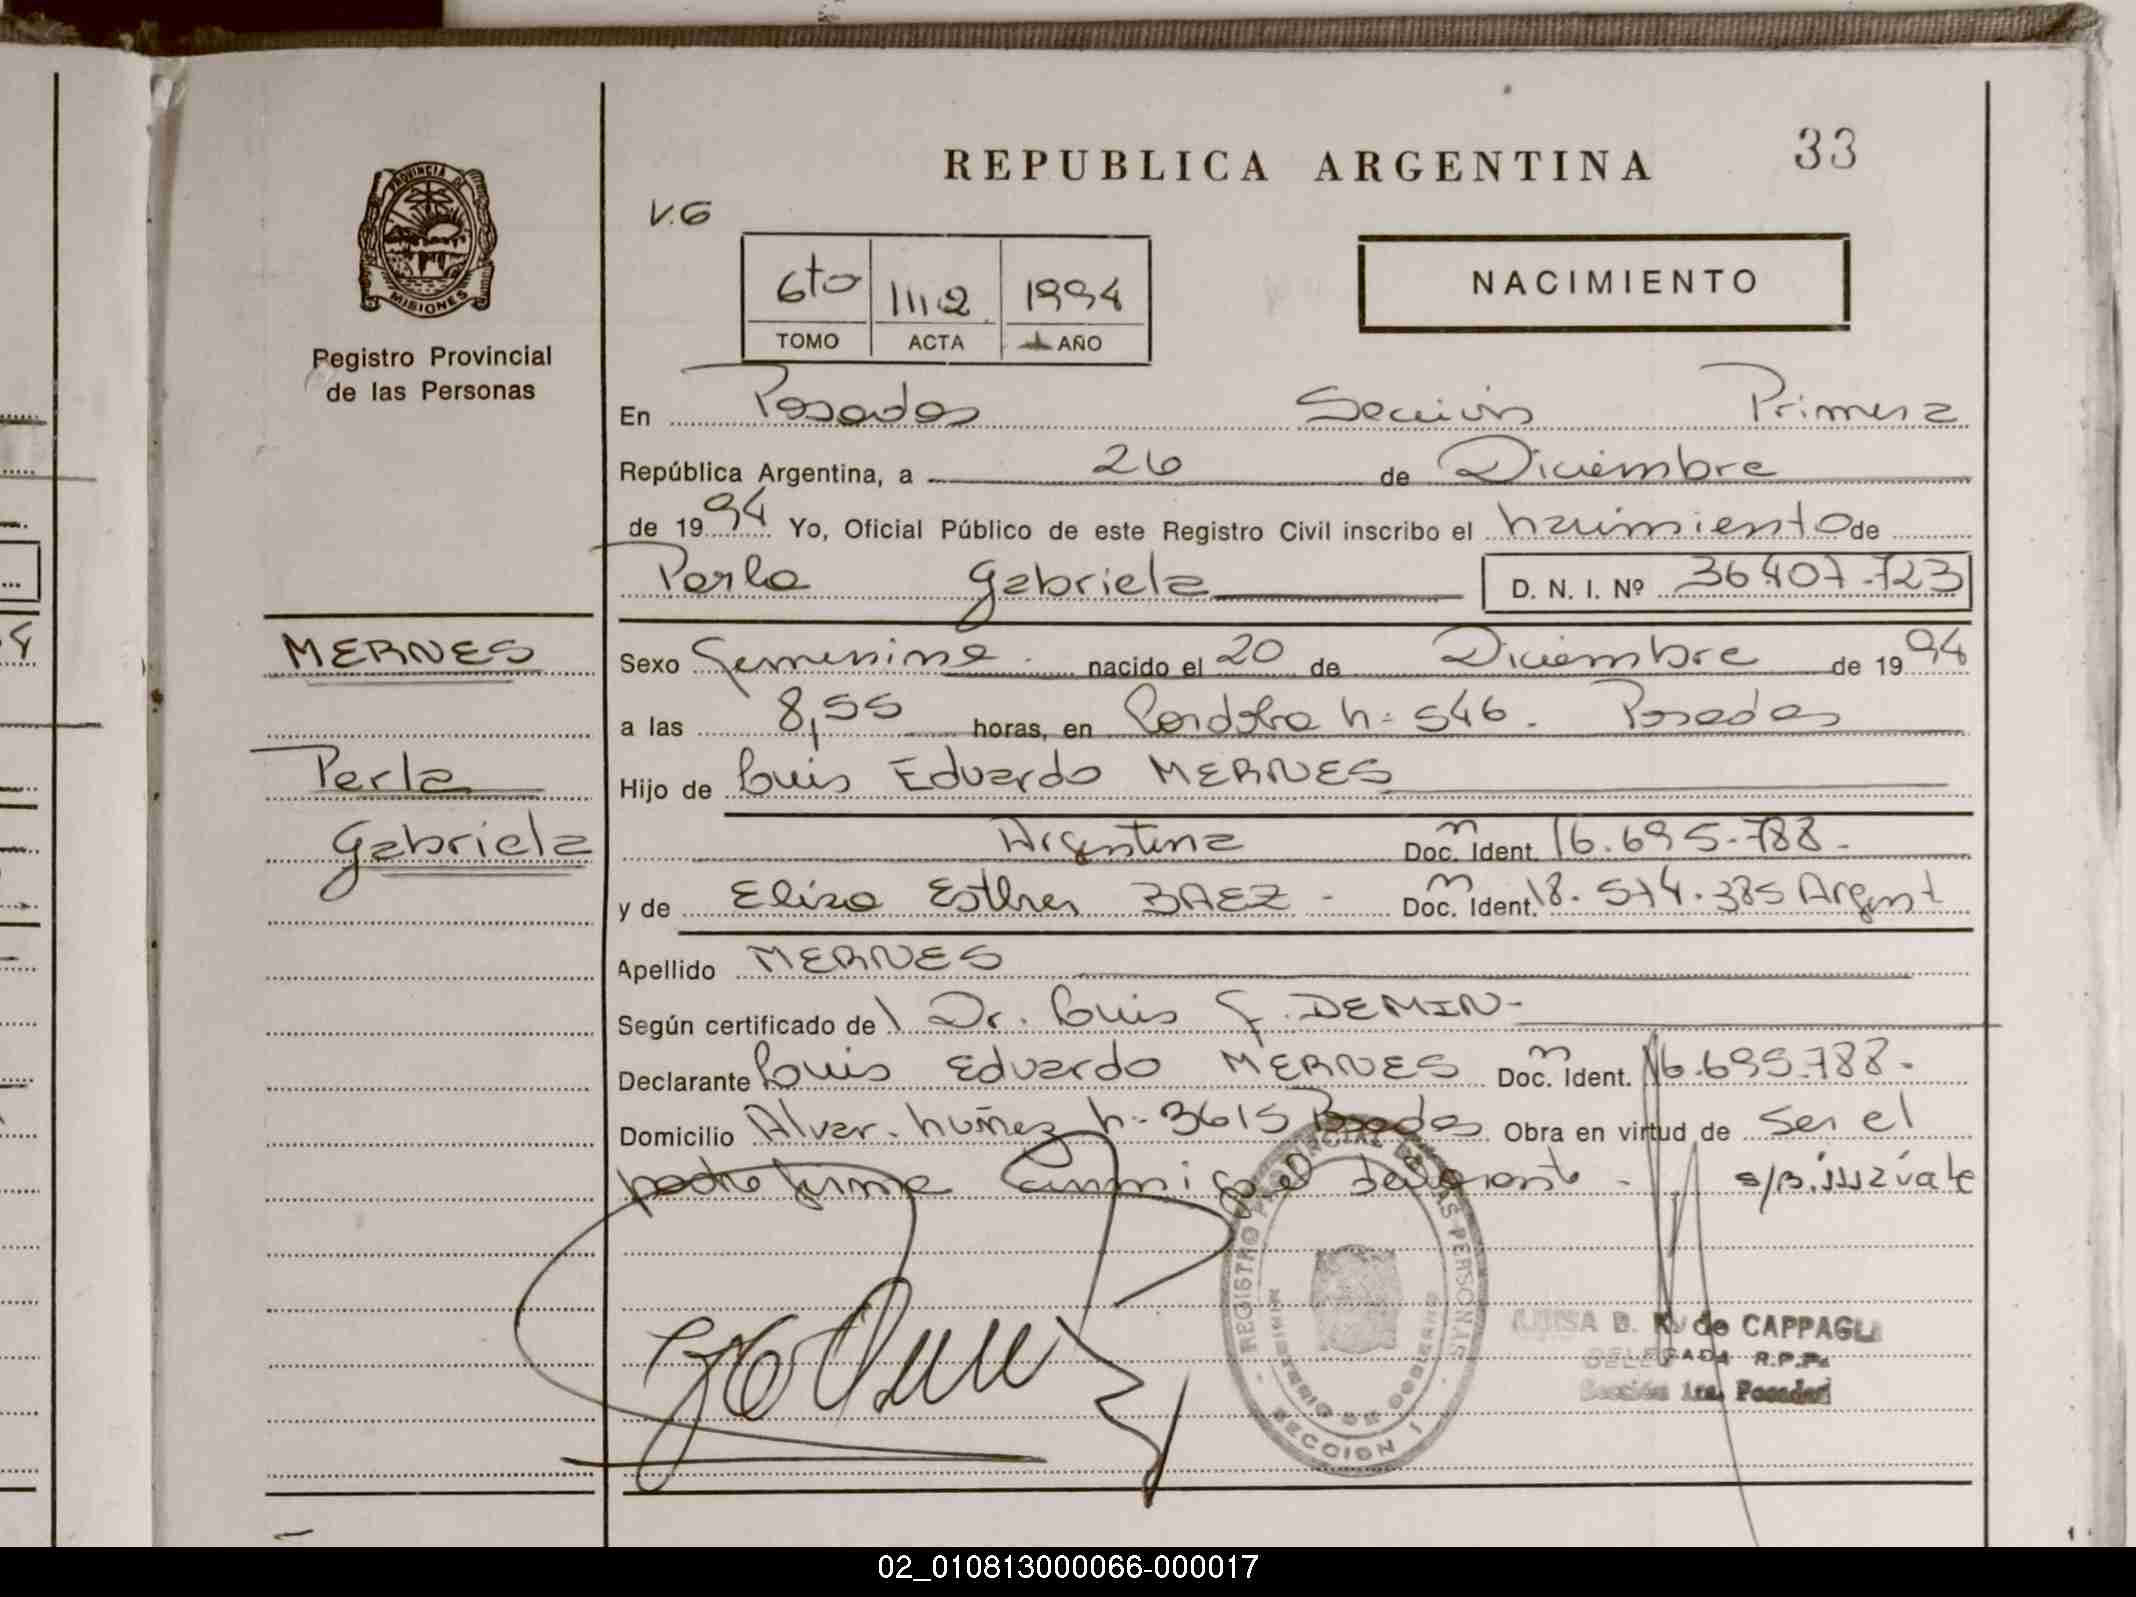 REPUBLICA ARGENTINA 33
PROVINCIA DE
MISIONES
Registro Provincial
de las Personas
V.G
6to 1112 1994
TOMO ACTA AÑO
NACIMIENTO
En Posadas Sección Primera
República Argentina, a 26 de Diciembre
de 1994 Yo, Oficial Público de este Registro Civil inscribo el nacimiento de
Perla Gabriela D. N. I. Nº 36.407.723
MERNES
Perla
Gabriela
Sexo Femenino. nacido el 20 de Diciembre de 1994
a las 8,55 horas, en Cordoba n= 546. Posadas
Hijo de Luis Eduardo MERNES
Argentina Doc. Ident. 16.695.788.
y de Elisa Esther BAEZ - Doc. Ident. 18.574.385 Argent
Apellido MERNES
Según certificado del Dr. Luis F. DEMIN-
Declarante Luis Eduardo MERNES Doc. Ident. 16.695.788.
Domicilio Alvar. Nuñez n= 3615 Posadas Obra en virtud de ser el
padre firma conmigo el declarante - s/B. 1112 vale
REGISTRO PROVINCIAL DE LAS PERSONAS
MINISTERIO DE GOBIERNO
SECCION 1
LUISA B. K. de CAPPAGLI
DELEGADA R.P.P.
Sección 1ra. Posadas
02_010813000066-000017